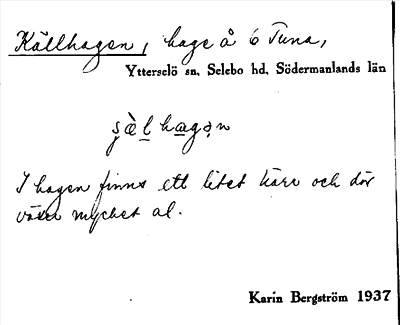 Källhagen, hage å 6 Tuna,
Ytterselö sn, Selebo hd, Södermanlands län
hagen
I hagen finns ett litet kärr och där
växer mycket al.
Karin Bergström 1937